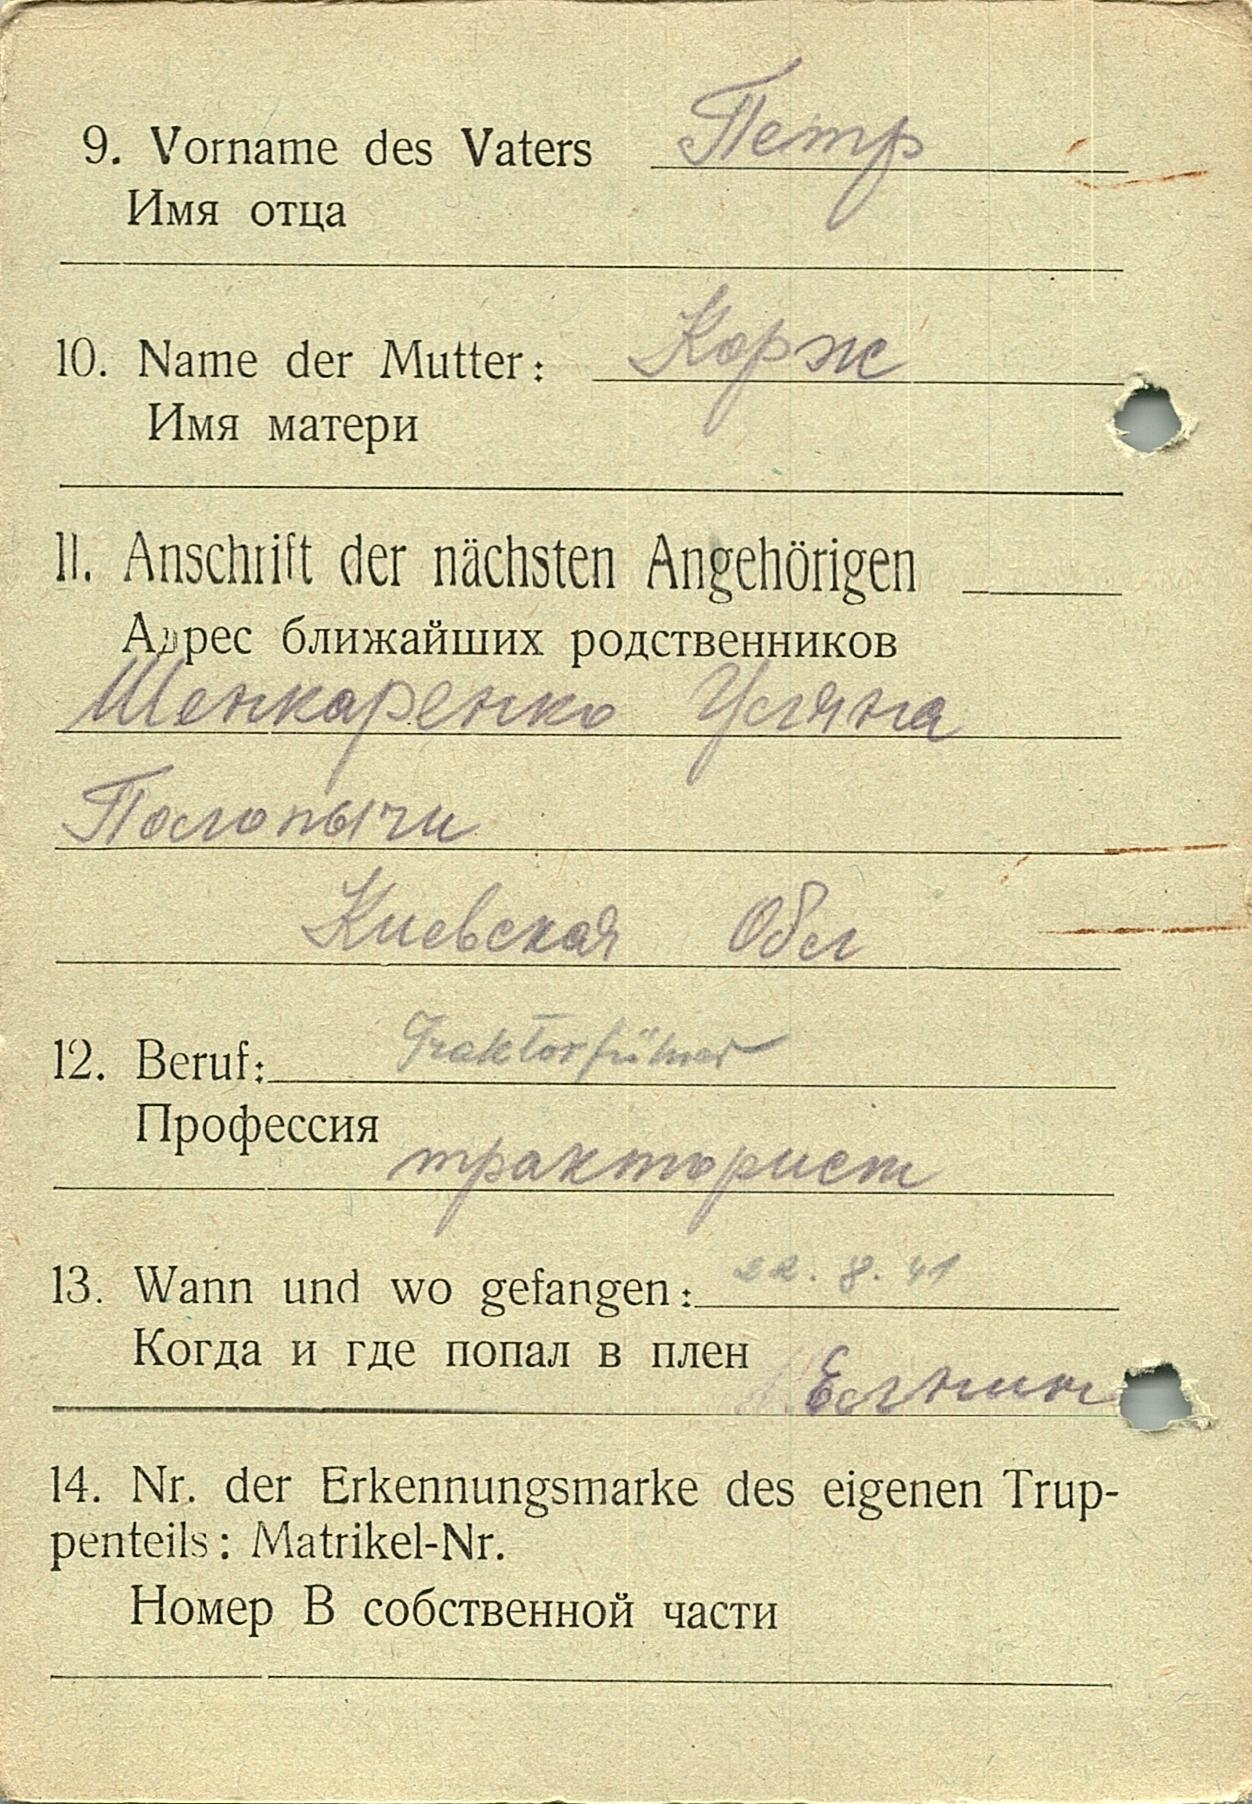 9. Vorname des Vaters Петр
Имя отца
10. Name der Mutter: Корж
Имя матери
11. Anschrift der nächsten Angehörigen
Адрес ближайших родственников
Шенкаренко Усляна
Полопычи
Киевская Обл
12. Beruf: Traktorführer
Профессия
тракторист
13. Wann und wo gefangen: 22. 8. 41
Когда и где попал в плен
14. Nr. der Erkennungsmarke des eigenen Trup-
penteils: Matrikel-Nr.
Номер В собственной части